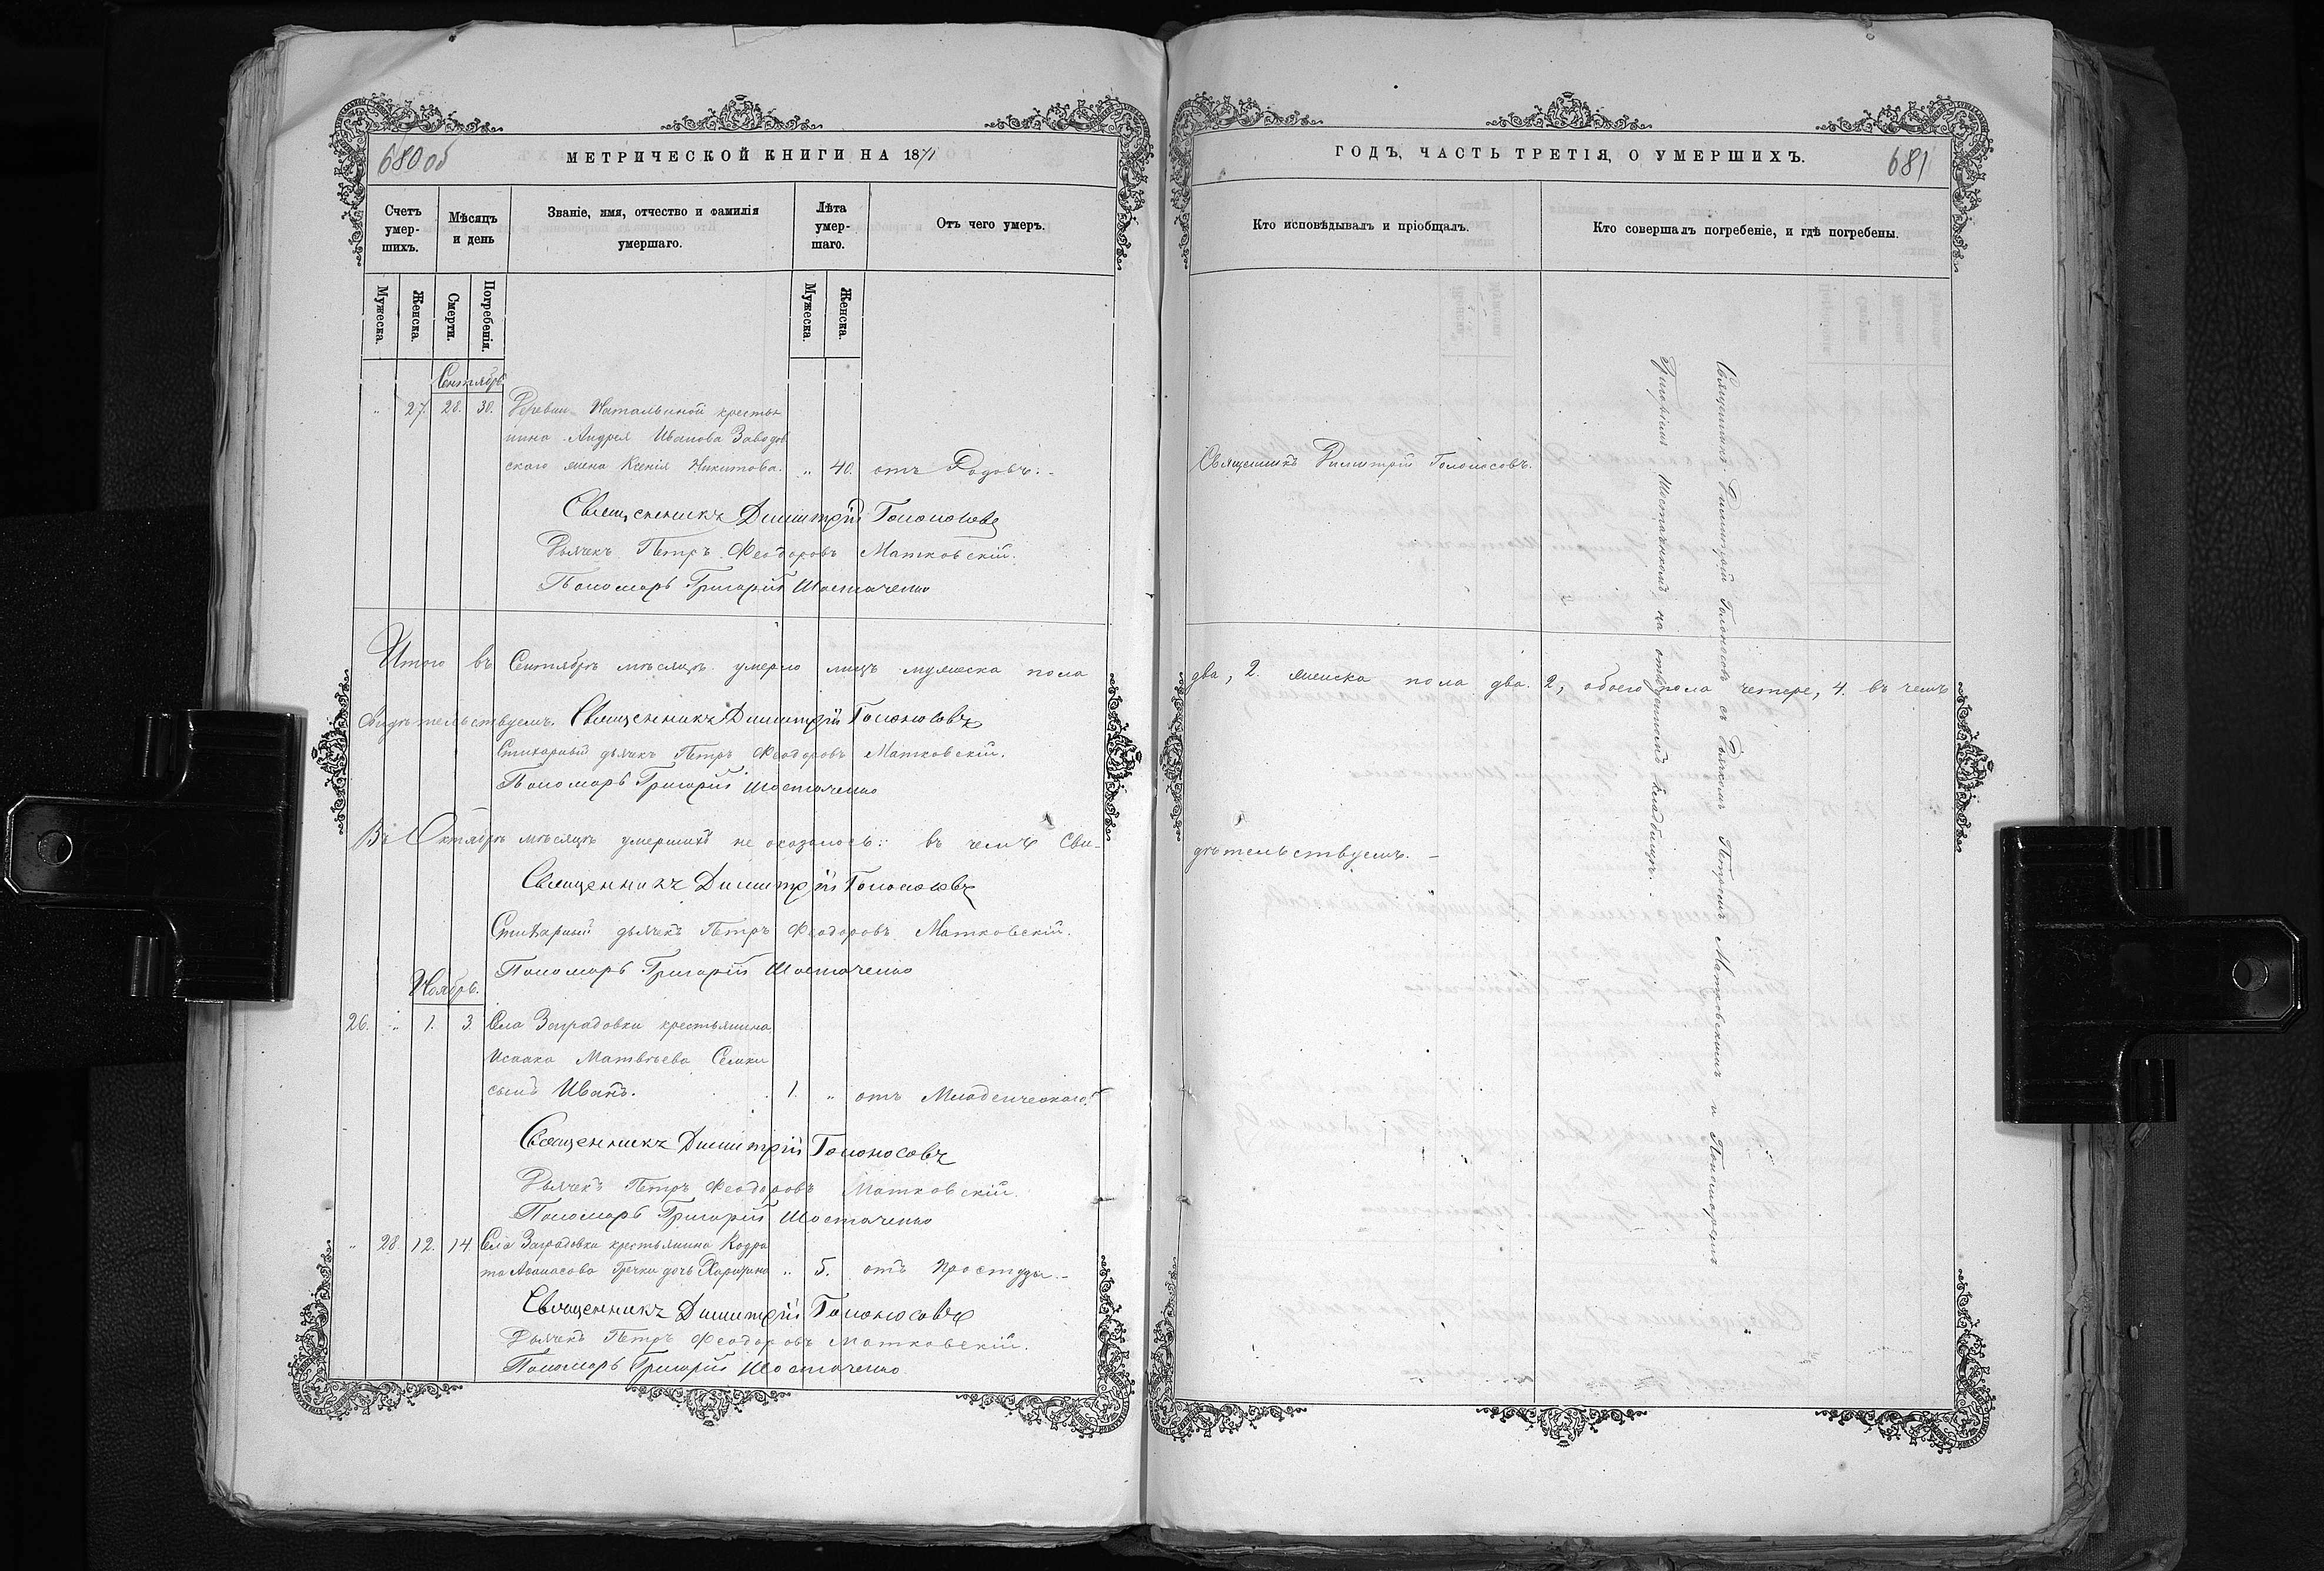 680 об
МЕТРИЧЕСКОЙ КНИГИ НА 1871
Счетъ умер-шихъ.
Мѣсяцъ и день
Званіе, имя, отчество и фамилія умершаго.
Лѣта умер-шаго.
Отъ чего умеръ.
Мужеска.
Женска.
Смерти.
Погребенія.
Мужеска.
Женска.
Сентябрь
" 27. 28. 30. Деревни Натальиной крестья
нина Андрея Иванова Заводов
скаго жена Ксенія Никитова. " 40. отъ Родовъ.-
Священникъ Димитрій Голоносовъ
Дьячекъ Петръ Феодоровъ Матковскій.
Пономарь Григорій Шостаченко
Итого въ Сентябрѣ мѣсяцѣ умерло лицъ мужеска пола
свидѣтельствуемъ. Священникъ Димитрій Голоносовъ
Стихарный дьячекъ Петръ Феодоровъ Матковскій.
Пономарь Григорій Шостаченко
Въ Октябрѣ мѣсяцѣ умершихъ не оказалось: въ чемъ сви-
Священникъ Димитрій Голоносовъ
Стихарный дьячекъ Петръ Феодоровъ Матковскій.
Пономарь Григорій Шостаченко
Ноябрь.
26. " 1. 3. Села Заградовки крестьянина
Исаака Матвѣева Семки
сынъ Иванъ. 1. " отъ Младенческаго.
Священникъ Димитрій Голоносовъ
Дьячекъ Петръ Феодоровъ Матковскій.
Пономарь Григорій Шостаченко
" 28. 12. 14. Села Заградовки крестьянина Кодра
та Афанасова Гречки дочь " 5. отъ простуды.-
Священникъ Димитрій Голоносовъ
Дьячекъ Петръ Феодоровъ Матковскій.
Пономарь Григорій Шостаченко
681
ГОДЪ, ЧАСТЬ ТРЕТІЯ, О УМЕРШИХЪ.
Кто исповѣдывалъ и пріобщалъ.
Кто совершалъ погребеніе, и гдѣ погребены.
Священникъ Димитрій Голоносовъ.
Священникъ Димитрій Голоносовъ съ Дьячкомъ Петромъ Матковскимъ и Пономаремъ
Григоріемъ Шостаченкомъ на отведенномъ кладбищѣ.
два, 2. женска пола два. 2, обоего пола четыре, 4. въ чемъ
дѣтельствуемъ.-